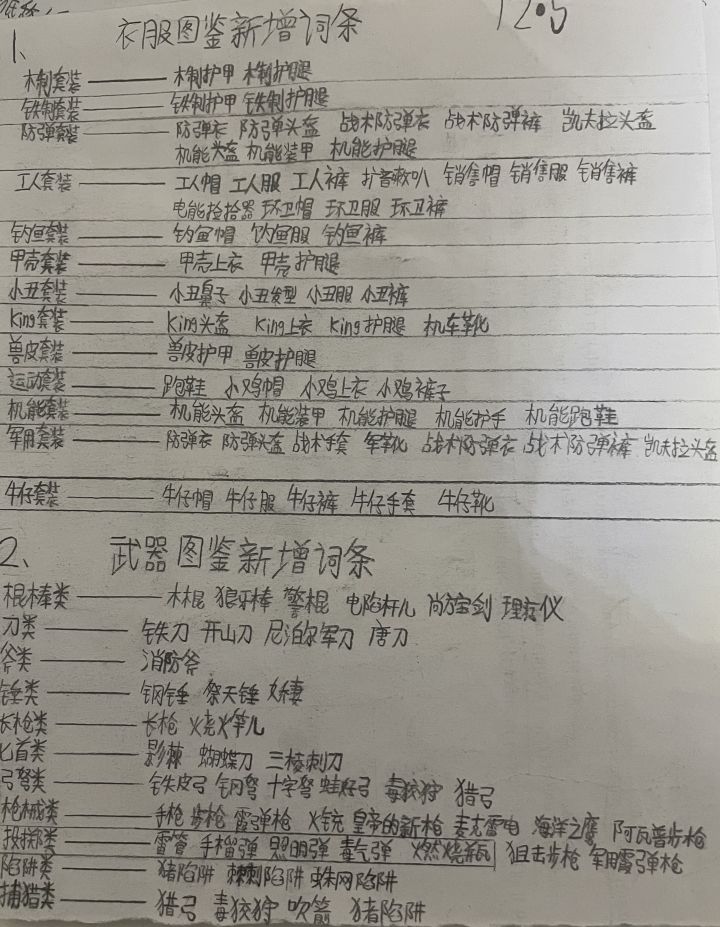 12.5
1、 衣服图鉴新增词条
木制套装 —— 木制护甲 木制护腿
铁制套装 —— 铁制护甲 铁制护腿
防弹套装 —— 防弹衣 防弹头盔 战术防弹衣 战术防弹裤 凯夫拉头盔
机能头盔 机能装甲 机能护腿
工人套装 —— 工人帽 工人服 工人裤 扩音喇叭 销售帽 销售服 销售裤
电能捡拾器 环卫帽 环卫服 环卫裤
钓鱼套装 —— 钓鱼帽 钓鱼服 钓鱼裤
甲壳套装 —— 甲壳上衣 甲壳护腿
小丑套装 —— 小丑鼻子 小丑发型 小丑服 小丑裤
King套装 —— King头盔 King上衣 King护腿 机车靴
兽皮套装 —— 兽皮护甲 兽皮护腿
运动套装 —— 跑鞋 小鸡帽 小鸡上衣 小鸡裤子
机能套装 —— 机能头盔 机能装甲 机能护腿 机能护手 机能跑鞋
军用套装 —— 防弹衣 防弹头盔 战术手套 军靴 战术防弹衣 战术防弹裤 凯夫拉头盔
牛仔套装 —— 牛仔帽 牛仔服 牛仔裤 牛仔手套 牛仔靴
2、 武器图鉴新增词条
棍棒类 —— 木棍 狼牙棒 警棍 电陷杆儿 尚方宝剑 理疗仪
刀类 —— 铁刀 开山刀 尼泊尔军刀 唐刀
斧类 —— 消防斧
锤类 —— 钢锤 祭天锤 娇妻
长枪类 —— 长枪 火烧火竿儿
匕首类 —— 影棘 蝴蝶刀 三棱刺刀
弓弩类 —— 铁皮弓 钢弩 十字弩 蛙好弓 毒狡狩 猎弓
枪械类 —— 手枪 步枪 霰弹枪 火铳 皇帝的新枪 麦克雷电 海洋之鹰 阿瓦普步枪
投掷类 —— 雷管 手榴弹 照明弹 毒气弹 燃烧瓶 狙击步枪 军用霰弹枪
陷阱类 —— 猪陷阱 棘刺陷阱 蛛网陷阱
捕猎类 —— 猎弓 毒狡狩 吹箭 猪陷阱